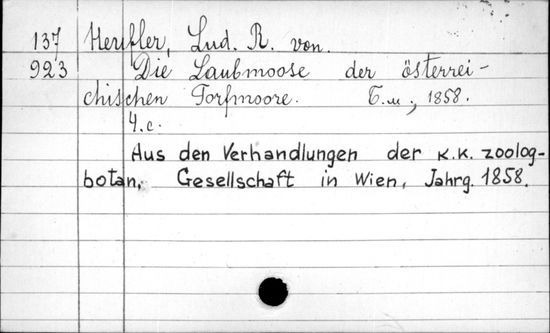 137 Heufler, Lud. R. von.
923 Die Laubmoose der österrei-
chischen Torfmoore. 1858.
4.c.
Aus den Verhandlungen der K.K. zoolog-
botan. Gesellschaft in Wien, Jahrg. 1858.